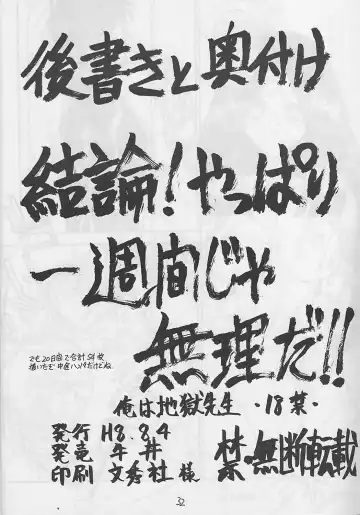 後書きと奥付け
結論!やっぱり
一週間じゃ
無理だ!!
でも20日間で合計54枚
描いたぞ中医ハンパだけどね
俺は地獄先生・18禁・
発行 H8.8.4
発竜 牛丼
印刷 文秀社様
禁・無断転載
32